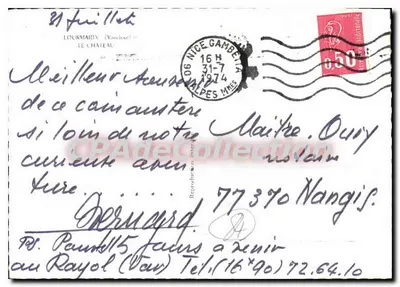 31 Juillet
LOURMARIN (Vaucluse)
LE CHATEAU
06 NICE GAMBETTA
16 H
31-7
1974
ALPES MMES
0,50
Meilleur
de ce coin
si loin de notre
curieuse aven
ture......
Bernard.
Maître Oury
notaire
77370 Nangis.
CPAdeCollection
PS. Pour 15 jours à venir
au Rayol (Var) Tel. (16*90) 72.64.10